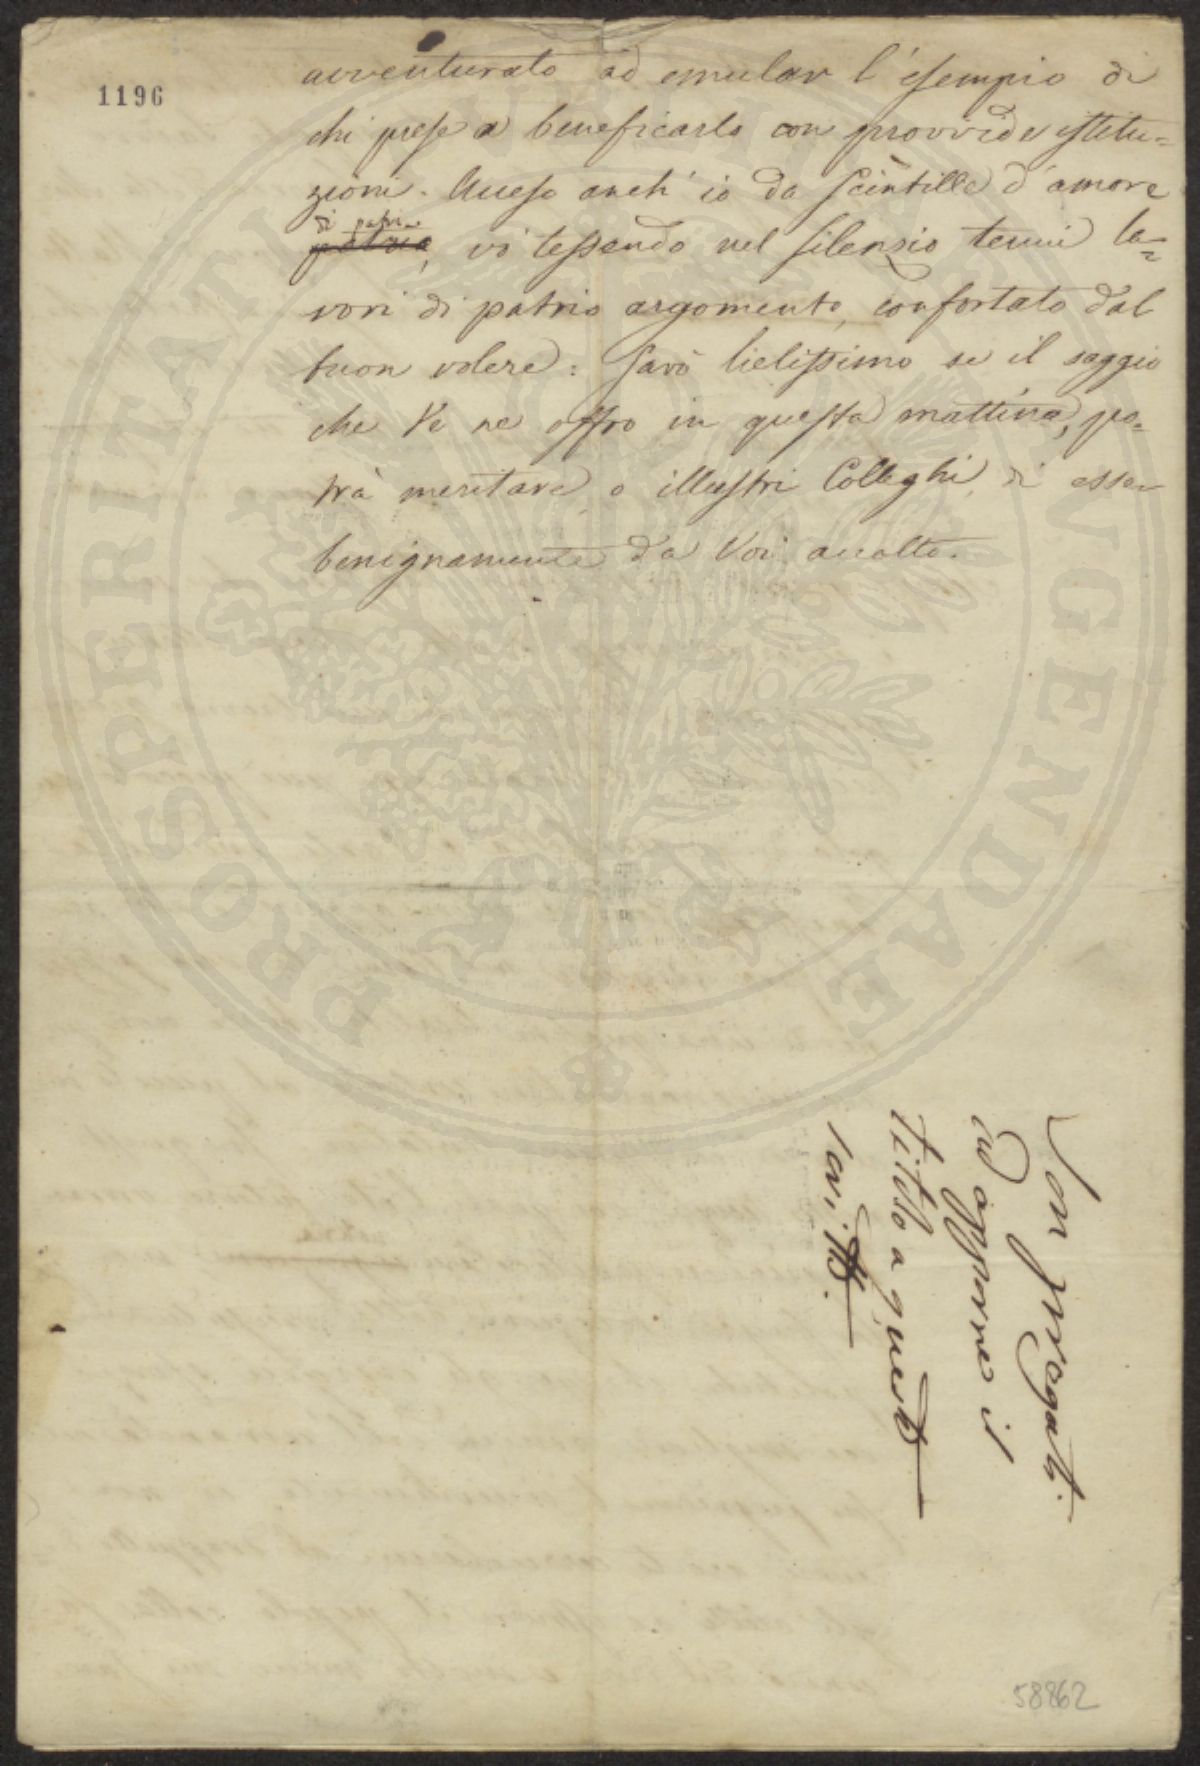 1196
avventurato ad emular l'esempio di
chi prese a beneficarlo con provvide istitu=
zioni. Acceso anch'io da scintilla d'amore
di patria
patria, vo tessendo nel silenzio tenui la=
vori di patrio argomento, confortato dal
buon volere: sarò lietissimo se il saggio
che Ve ne offro in questa mattina, po=
trà meritare, o illustri Colleghi, di esser
benignamente da Voi accolto.
Son pregati
ad apporre il
titolo a questo
scritto.
58862
PROSPERITATI PUBLICAE AUGENDAE